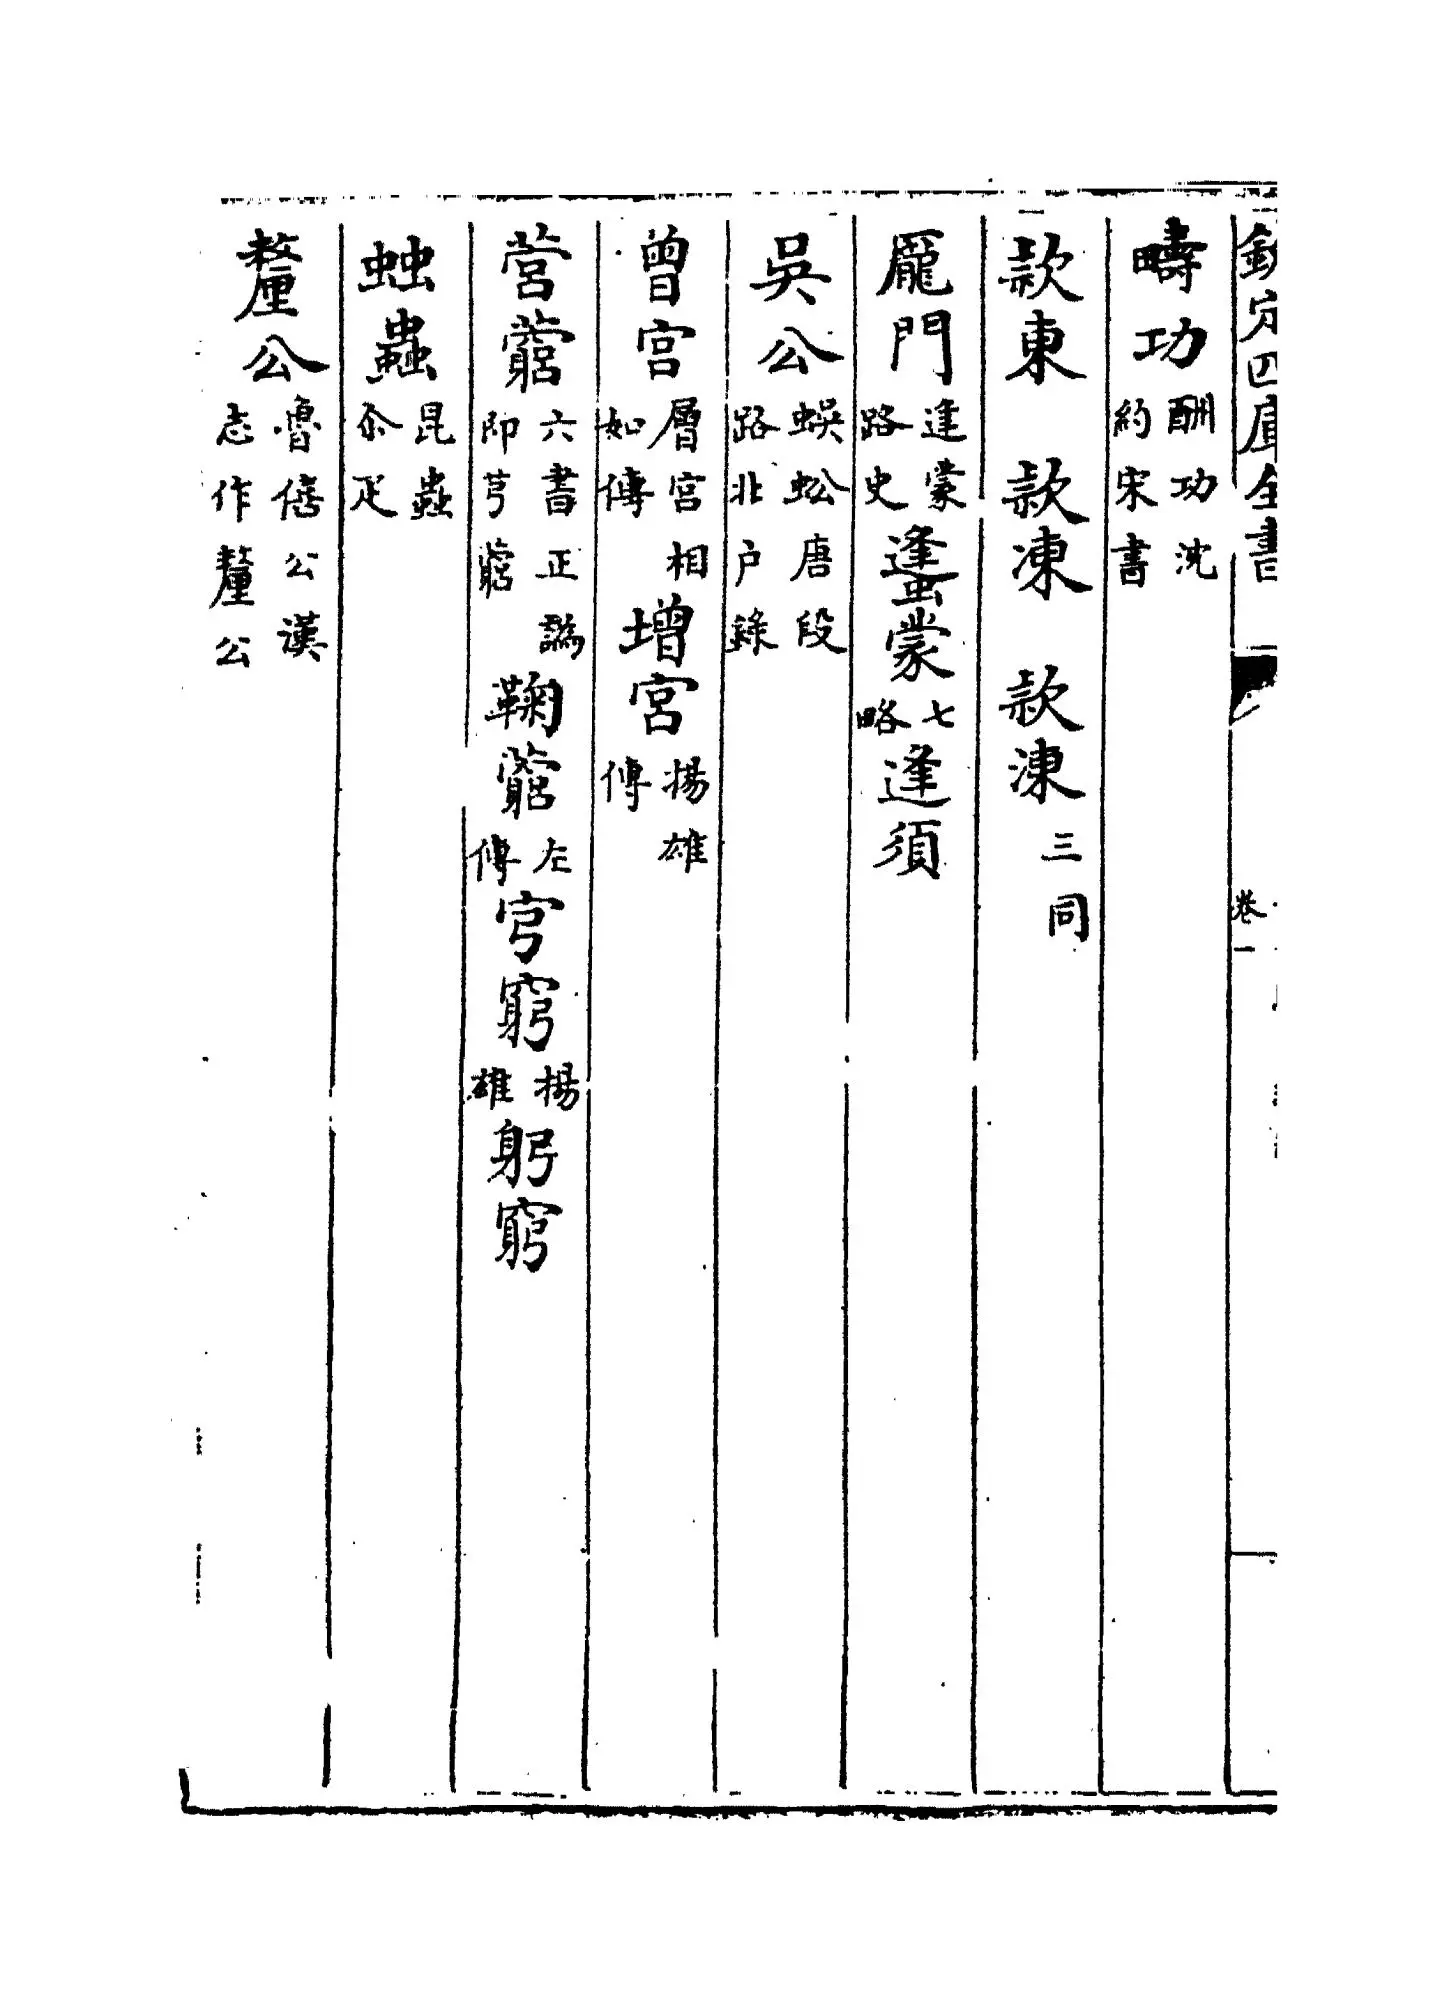 欽定四庫全書 卷一
疇功 酬功沈約宋書
款東 款凍 款涷 三同
龎門 逢蒙路史 蠭蒙 七略 逢須
吳公 蜈蚣唐段路北户錄
曾宫 層宫相如傳 增宫 揚雄傳
营藭 六書正譌即芎藭 鞠藭 左傳 穹窮 揚雄 躬窮
䖵蟲 昆蟲尒疋
釐公 魯僖公漢志作釐公